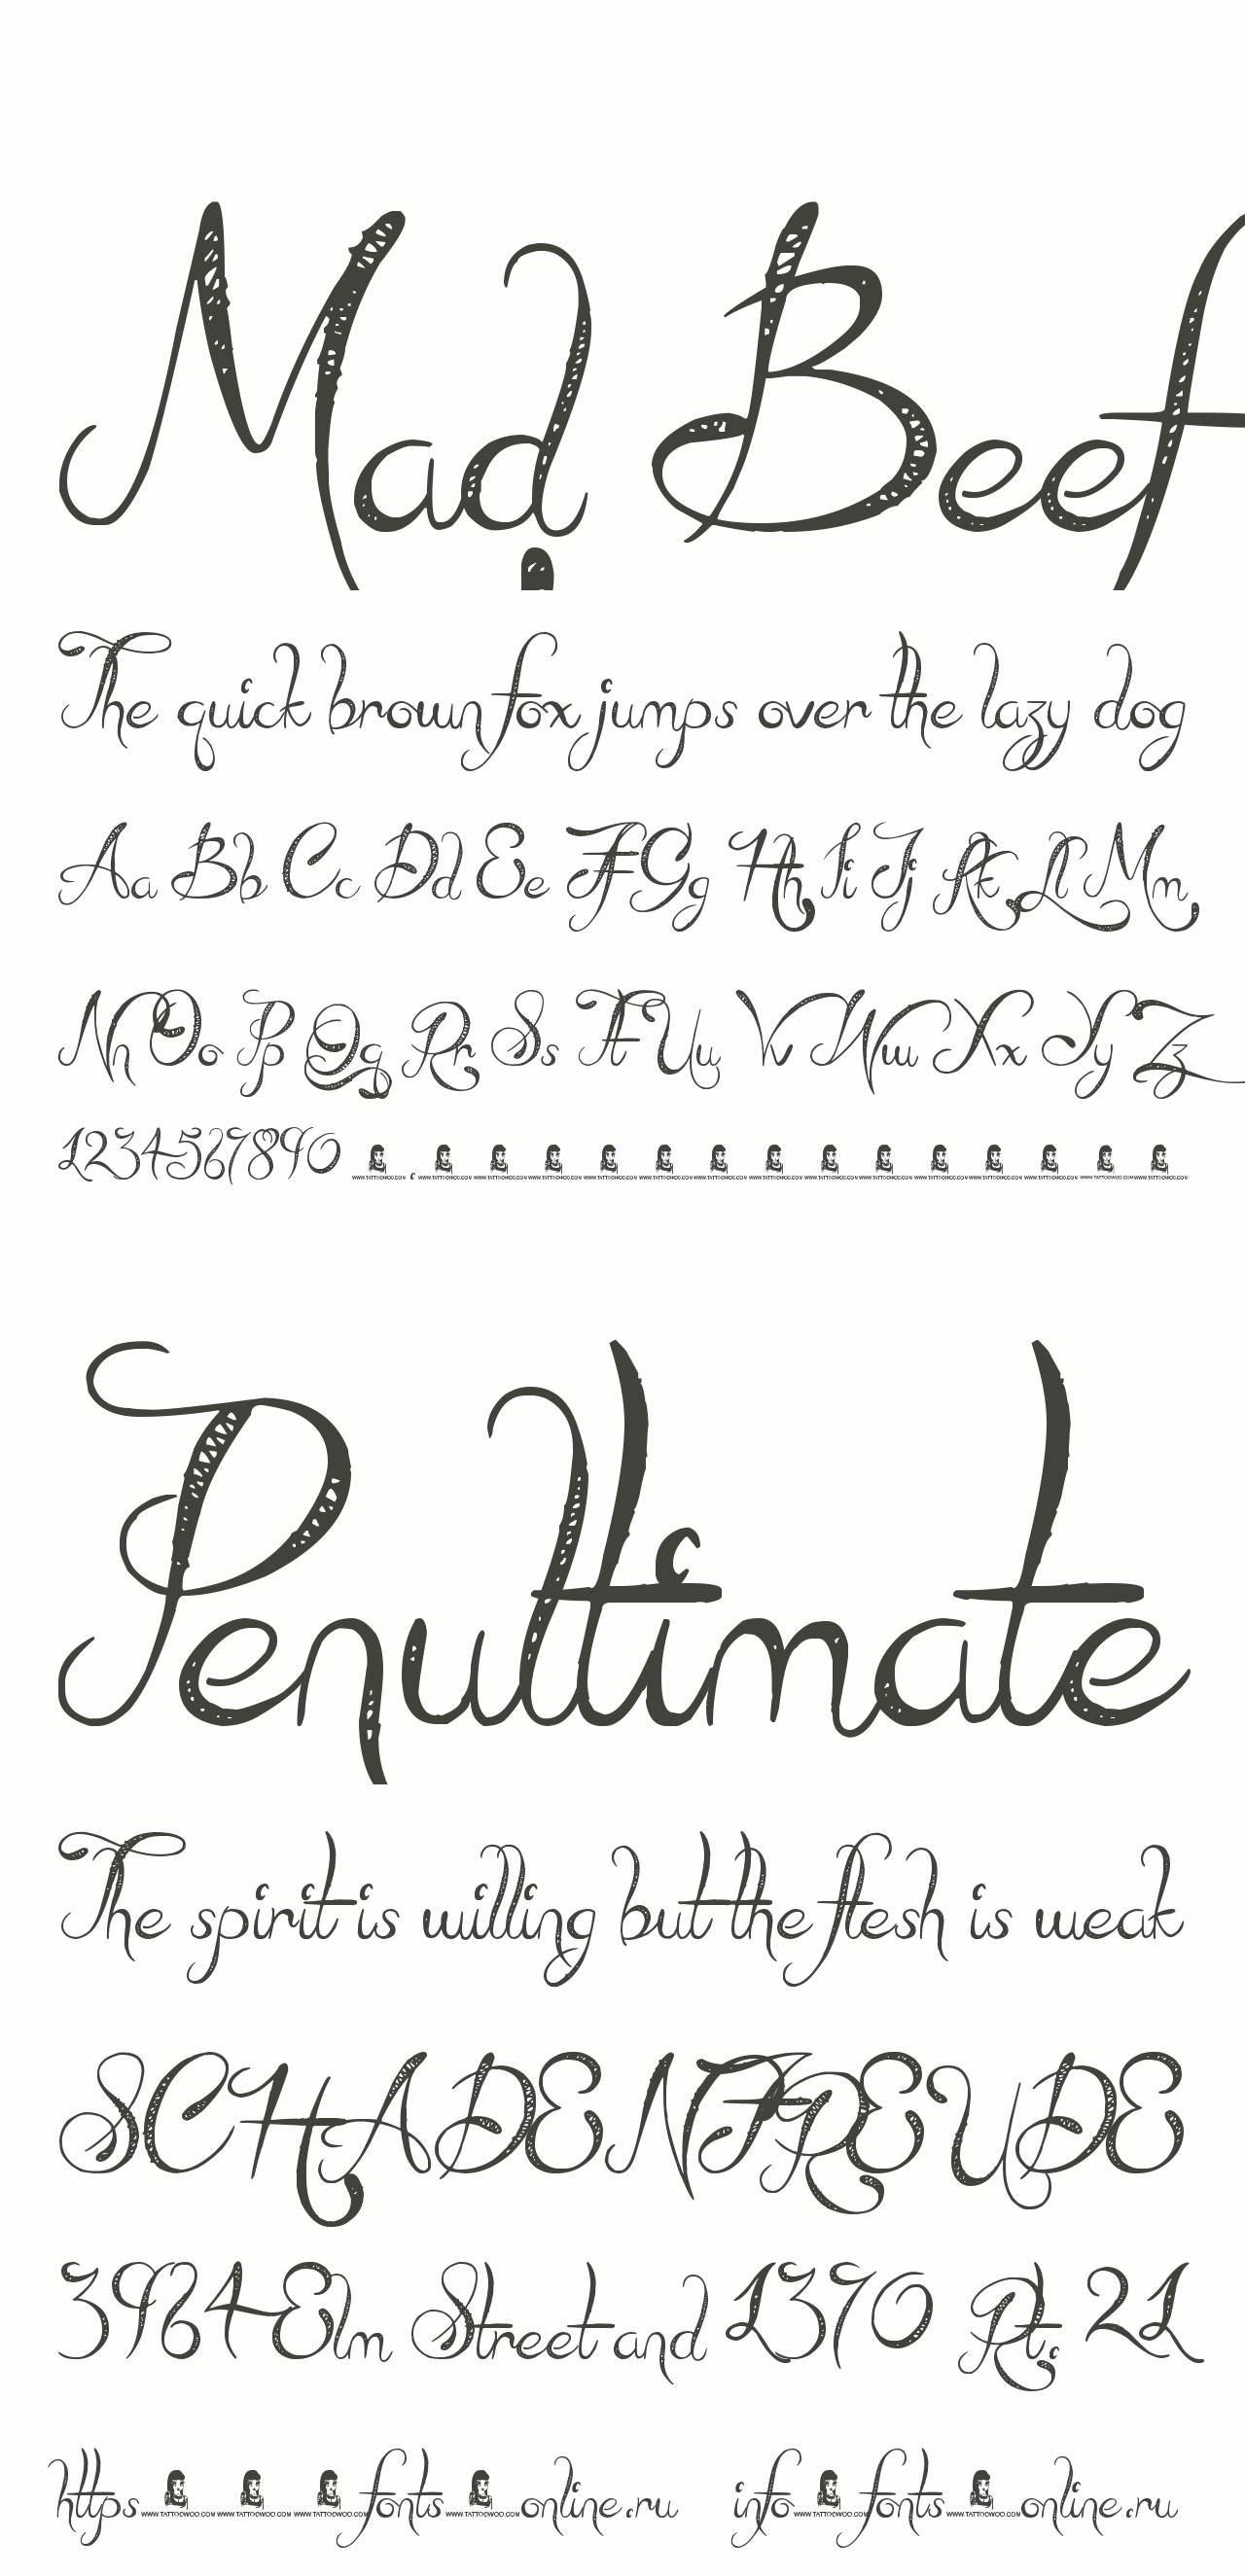 Mad Beef
The quick brown fox jumps over the lazy dog
Aa Bb Cc Dd Ee Ff Gg Hh Ii Jj Kk Ll Mm
Nn Oo Pp Qq Rr Ss Tt Uu Vv Ww Xx Yy Zz
1234567890 WWW.TATTOOWOO.COM . WWW.TATTOOWOO.COM WWW.TATTOOWOO.COM WWW.TATTOOWOO.COM WWW.TATTOOWOO.COM WWW.TATTOOWOO.COM WWW.TATTOOWOO.COM WWW.TATTOOWOO.COM WWW.TATTOOWOO.COM WWW.TATTOOWOO.COM WWW.TATTOOWOO.COM WWW.TATTOOWOO.COM WWW.TATTOOWOO.COM WWW.TATTOOWOO.COM WWW.TATTOOWOO.COM
Penultimate
The spirit is willing but the flesh is weak
SCHADENFREUDE
3964 Elm Street and 1370 Rt. 21
https WWW.TATTOOWOO.COM WWW.TATTOOWOO.COM WWW.TATTOOWOO.COM fonts WWW.TATTOOWOO.COM online.ru info WWW.TATTOOWOO.COM fonts WWW.TATTOOWOO.COM online.ru